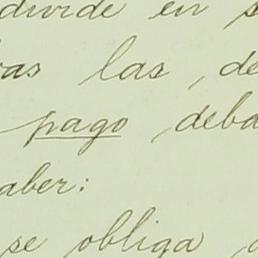 divide en s
as las, de
pago, deba
aber:
se obliga a